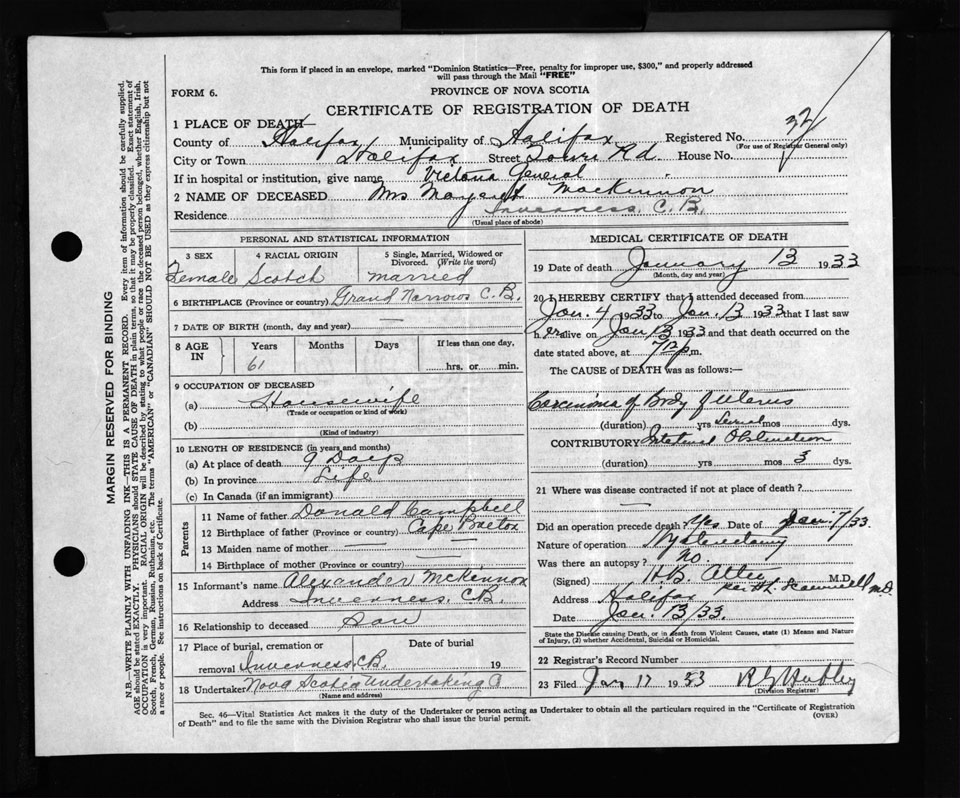 This form if placed in an envelope, marked "Dominion Statistics—Free, penalty for improper use, $300," and properly addressed
will pass through the Mail "FREE"
FORM 6.
PROVINCE OF NOVA SCOTIA
CERTIFICATE OF REGISTRATION OF DEATH
1 PLACE OF DEATH
County of Halifax Municipality of Halifax Registered No. 32
(For use of Registrar General only)
City or Town Halifax Street Tower Rd. House No.
If in hospital or institution, give name Victoria General
2 NAME OF DECEASED Mrs Margaret MacKinnon
Residence Inverness, C.B.
(Usual place of abode)
PERSONAL AND STATISTICAL INFORMATION
3 SEX 4 RACIAL ORIGIN 5 Single, Married, Widowed or Divorced. (Write the word)
Female Scotch married
6 BIRTHPLACE (Province or country) Grand Narrows C.B.
7 DATE OF BIRTH (month, day and year) —
8 AGE IN Years Months Days If less than one day,
61 hrs. or min.
9 OCCUPATION OF DECEASED
(a) Housewife
(Trade or occupation or kind of work)
(b)
(Kind of industry)
10 LENGTH OF RESIDENCE (in years and months)
(a) At place of death 9 Days
(b) In province Life
(c) In Canada (if an immigrant)
Parents
11 Name of father Donald Campbell
12 Birthplace of father (Province or country) Cape Breton
13 Maiden name of mother —
14 Birthplace of mother (Province or country) —
15 Informant's name Alexander McKinnon
Address Inverness, C.B.
16 Relationship to deceased Son
17 Place of burial, cremation or removal Inverness, C.B. Date of burial 19
18 Undertaker Nova Scotia Undertaking
(Name and address)
MEDICAL CERTIFICATE OF DEATH
19 Date of death January 13 1933
(Month, day and year)
20 I HEREBY CERTIFY that I attended deceased from
Jan. 4 1933 to Jan. 13 1933 that I last saw
her alive on Jan 13 1933 and that death occurred on the
date stated above, at p.m.
The CAUSE of DEATH was as follows:—
Carcinoma of Body of Uterus
(duration) yrs Several mos dys.
CONTRIBUTORY Intestinal Obstruction
(duration) yrs mos 3 dys.
21 Where was disease contracted if not at place of death?
Did an operation precede death? Yes Date of Jan 7/33.
Nature of operation Hysterectomy
Was there an autopsy? No.
(Signed) H.B. Atlee M.D.
Address Halifax
Date Jan. 13/33.
State the Disease causing Death, or in death from Violent Causes, state (1) Means and Nature
of Injury, (2) whether Accidental, Suicidal or Homicidal.
22 Registrar's Record Number
23 Filed Jan 17 1933
(Division Registrar)
Sec. 46—Vital Statistics Act makes it the duty of the Undertaker or person acting as Undertaker to obtain all the particulars required in the "Certificate of Registration
of Death" and to file the same with the Division Registrar who shall issue the burial permit.
(OVER)
MARGIN RESERVED FOR BINDING
N.B.—WRITE PLAINLY WITH UNFADING INK—THIS IS A PERMANENT RECORD. Every item of information should be carefully supplied.
AGE should be stated EXACTLY. PHYSICIANS should STATE CAUSE OF DEATH in plain terms, so that it may be properly classified. Exact statement of
OCCUPATION is very important. RACIAL ORIGIN will be described by stating to what people or race the deceased person belonged, whether English, Irish,
Scotch, French, German, Russian, Ruthenian, etc. The terms "AMERICAN" or "CANADIAN" SHOULD NOT BE USED as they express citizenship but not
a race or people. See instructions on back of Certificate.